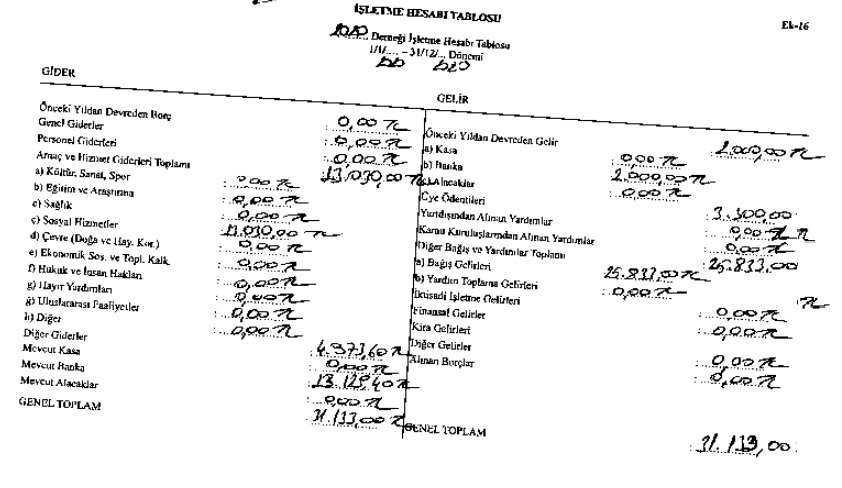 İŞLETME HESABI TABLOSU
Ek-16
Derneği İşletme Hesabı Tablosu
1/1/.... – 31/12/... Dönemi
GİDER
GELİR
Önceki Yıldan Devreden Borç : 0,00 TL
Genel Giderler : 0,00 TL
Personel Giderleri : 0,00 TL
Amaç ve Hizmet Giderleri Toplamı 13.030,00 TL
a) Kültür, Sanat, Spor : 0,00 TL
b) Eğitim ve Araştırma : 0,00 TL
c) Sağlık : 0,00 TL
ç) Sosyal Hizmetler 13.030,00 TL
d) Çevre (Doğa ve Hay. Kor.) : 0,00 TL
e) Ekonomik Sos. ve Topl. Kalk. : 0,00 TL
f) Hukuk ve İnsan Hakları : 0,00 TL
g) Hayır Yardımları : 0,00 TL
ğ) Uluslararası Faaliyetler : 0,00 TL
h) Diğer : 0,00 TL
Diğer Giderler 4.973,60 TL
Mevcut Kasa : 0,00 TL
Mevcut Banka : 13.129,40 TL
Mevcut Alacaklar : 0,00 TL
GENEL TOPLAM 31.133,00 TL
Önceki Yıldan Devreden Gelir 2.000,00 TL
a) Kasa : 0,00 TL
b) Banka 2.000,00 TL
c) Alacaklar : 0,00 TL
Üye Ödentileri : 3.300,00
Yurtdışından Alınan Yardımlar : 0,00 TL TL
Kamu Kuruluşlarından Alınan Yardımlar : 0,00 TL
Diğer Bağış ve Yardımlar Toplamı : 25.833,00
a) Bağış Gelirleri 25.833,00 TL
b) Yardım Toplama Gelirleri : 0,00 TL
TL
İktisadi İşletme Gelirleri : 0,00 TL
Finansal Gelirler : 0,00 TL
Kira Gelirleri
Diğer Gelirler : 0,00 TL
Alınan Borçlar : 0,00 TL
GENEL TOPLAM : 31.133,00